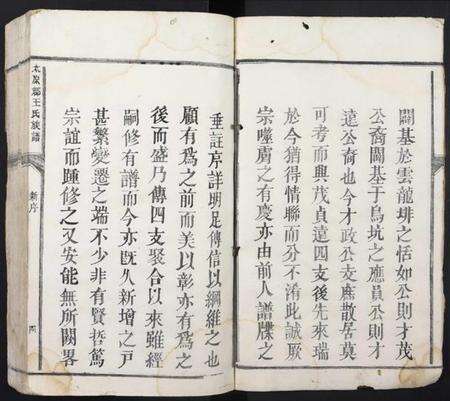 闢基於雲龍坢之恬如公則才茂
公裔闢基于烏坑之應員公則才
遠公裔也今才政公支庶散居莫
可考而與茂貞遠四支後先來瑞
於今猶得情聯而分不淆此誠厥
宗噬膚之有慶亦由前人譜牒之
垂註序詳明足傳信以綱維之也
顧有爲之前而美以彰亦有爲之
後而盛乃傳四支聚合以來雖經
嗣修有譜而今亦既久新增之戸
甚繁變遷之端不少非有賢哲篤
宗誼而踵修之又安能無所闕畧
太原郡王氏族譜
新序
四